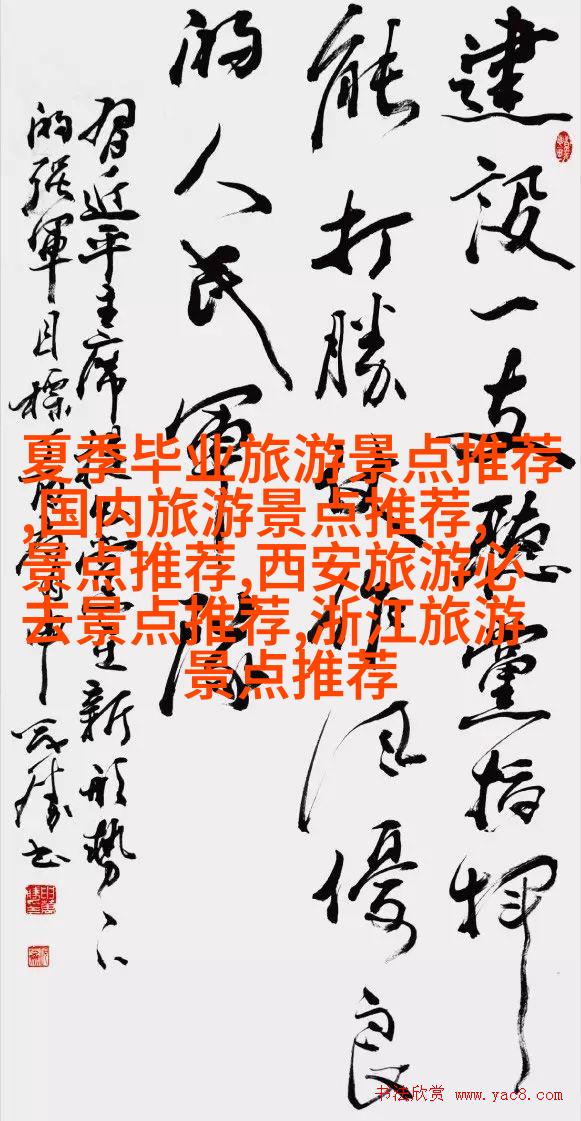 建設一支聽黨指揮
能打勝仗作風優良
的人民軍隊
習近平主席 新形勢下
的强軍目標
夏季毕业旅游景点推荐
,国内旅游景点推荐,
景点推荐,西安旅游必
去景点推荐,浙江旅游
景点推荐
书法欣赏 www.yac8.com